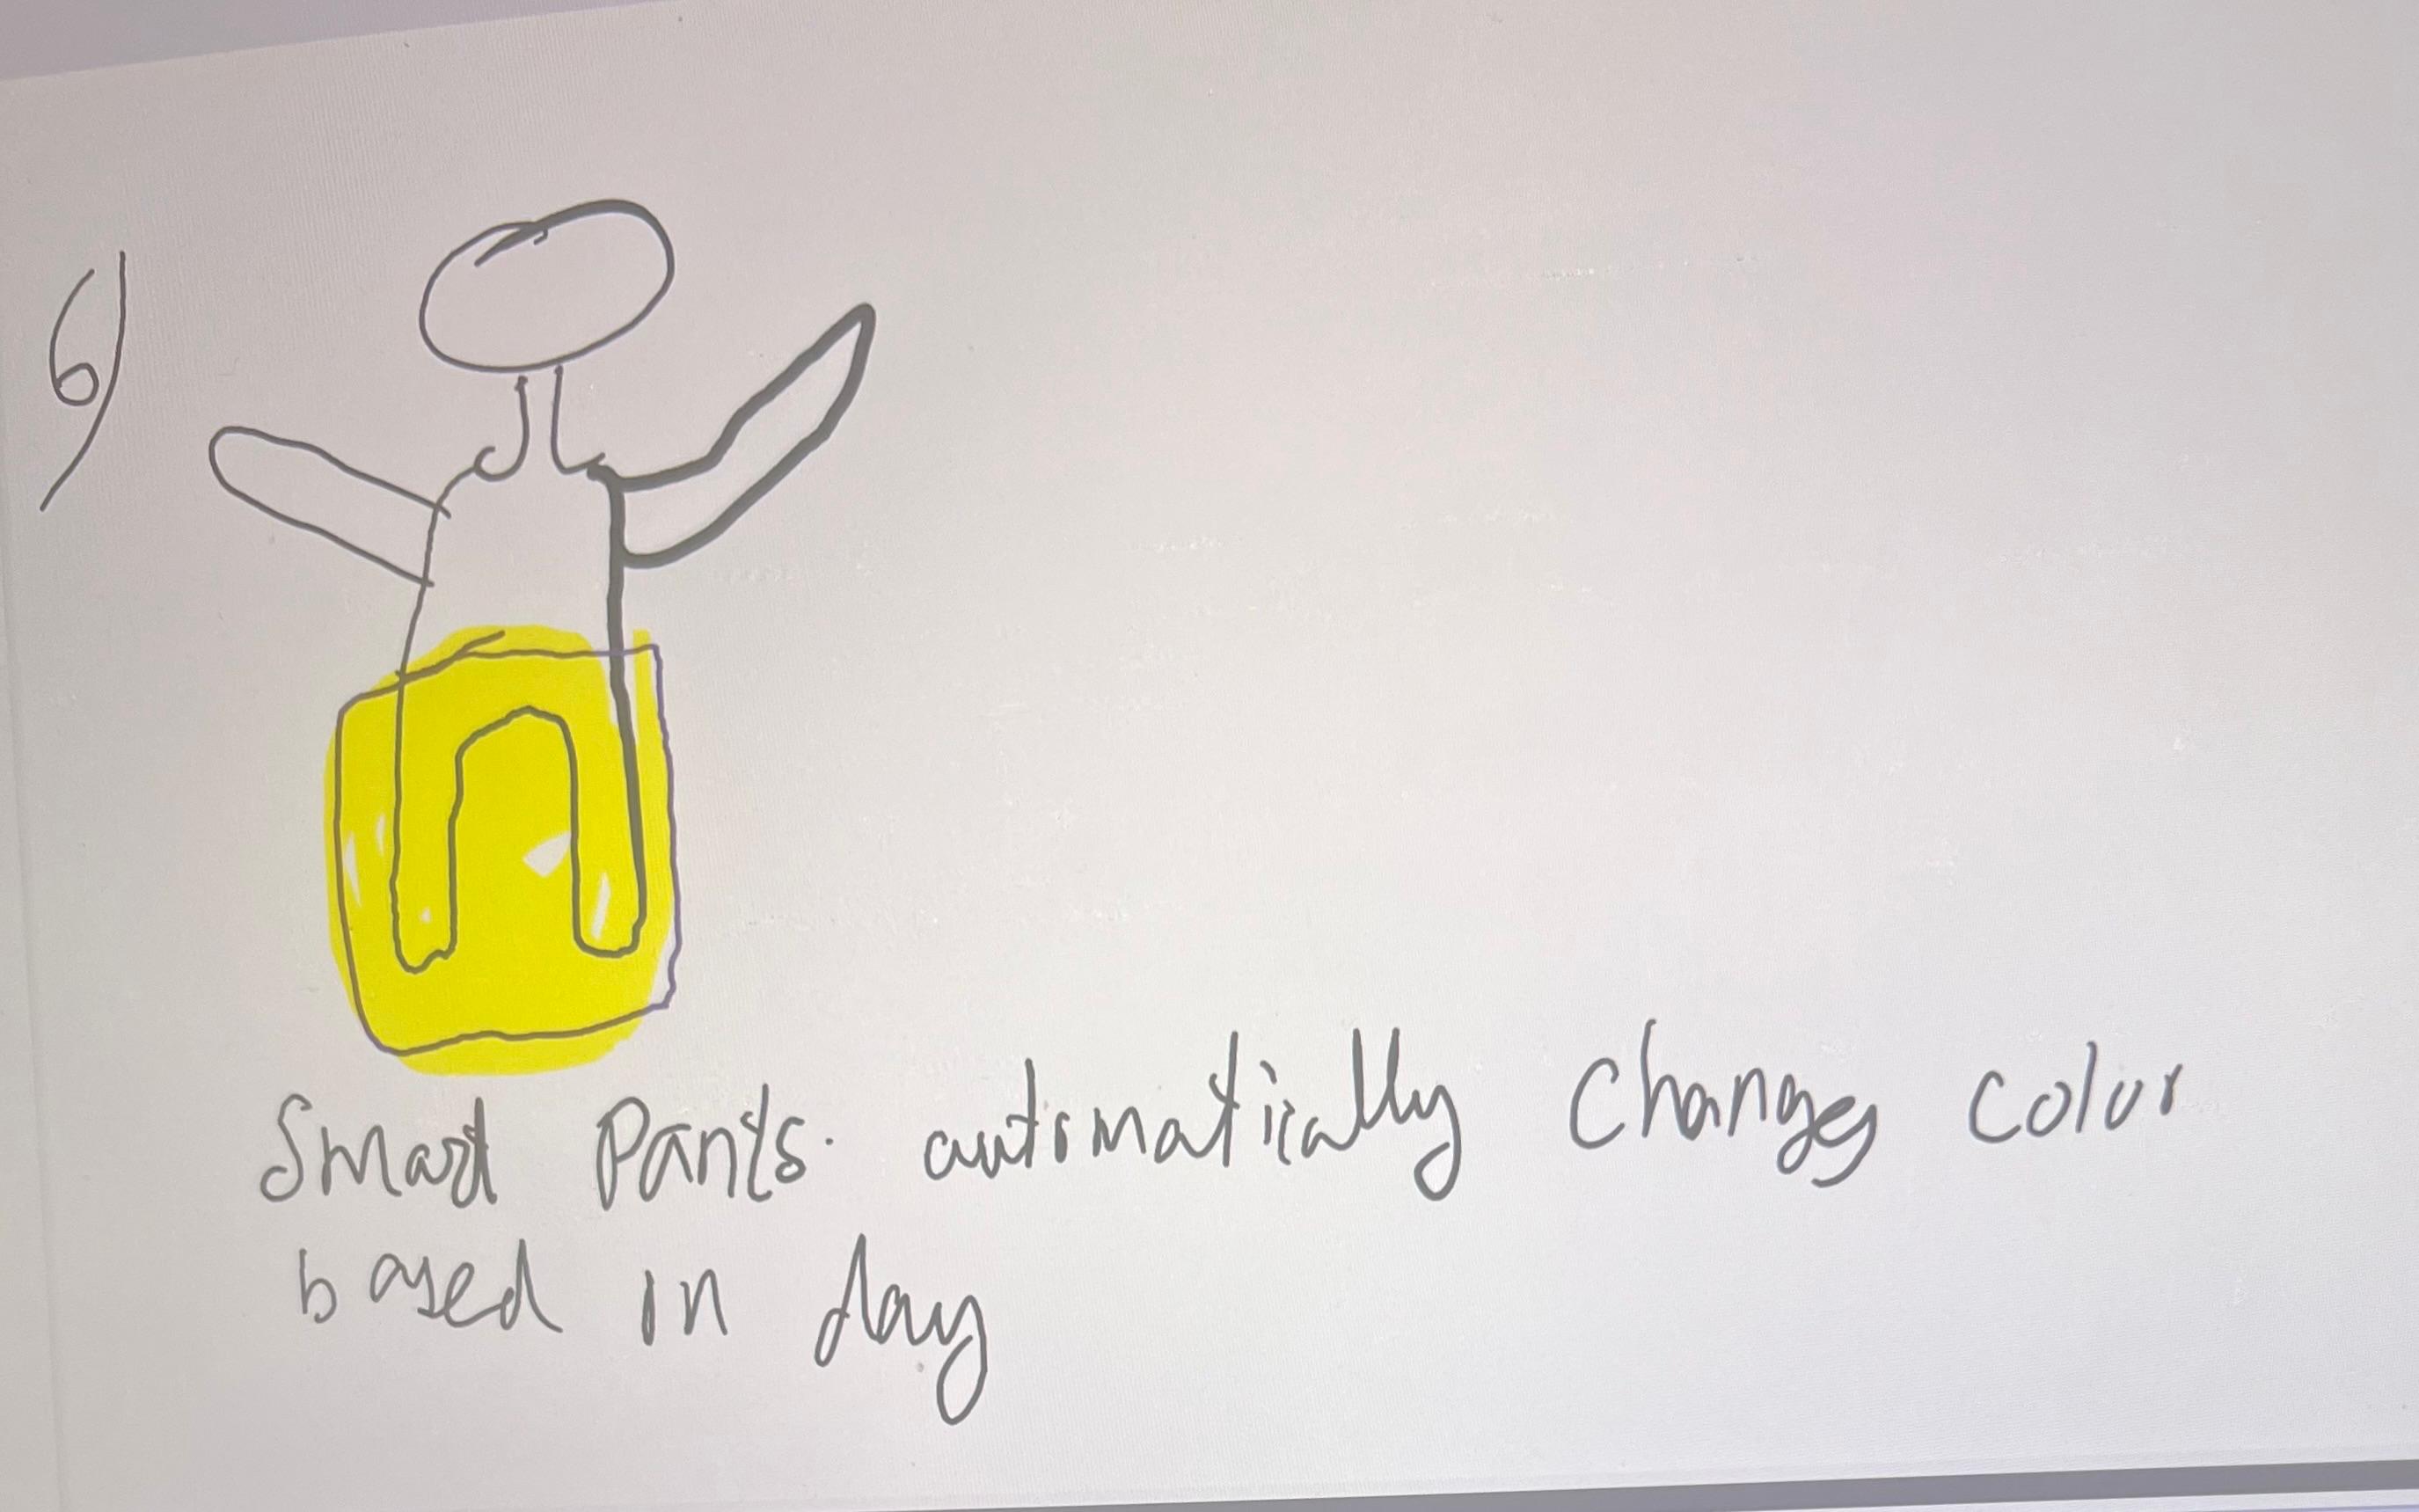 6)
Smart Pants. automatically changes color
based in day